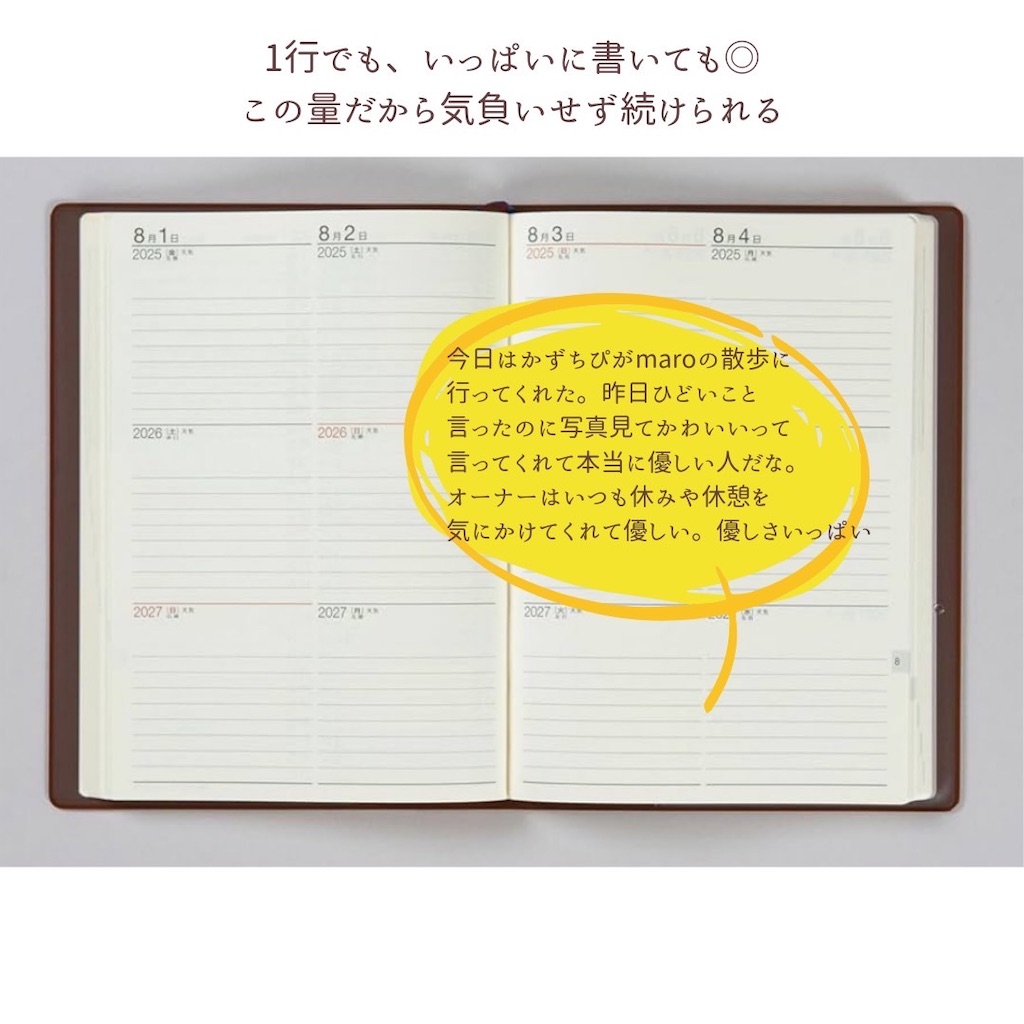 1行でも、いっぱいに書いても◎
この量だから気負いせず続けられる
8月1日
2025 (金) 天気
8月2日
2025 (土) 天気
8月3日
2025 (日) 天気
8月4日
2025 (月) 天気
今日はかずちぴがmaroの散歩に
行ってくれた。昨日ひどいこと
言ったのに写真見てかわいいって
言ってくれて本当に優しい人だな。
オーナーはいつも休みや休憩を
気にかけてくれて優しい。優しさいっぱい
2026 (土) 天気
2026 (日) 天気
2027 (日) 天気
2027 (月) 天気
2027 (火) 天気
8